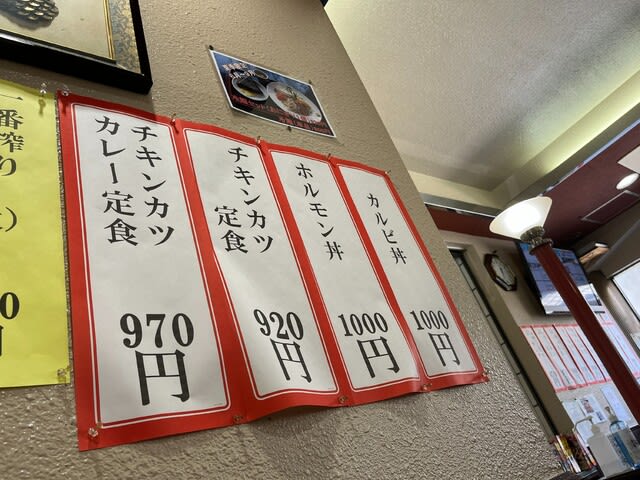 一番搾り
0
円
チキンカツ
カレー定食
970
円
チキンカツ
定食
920
円
ホルモン丼
1000
円
カルビ丼
1000
円